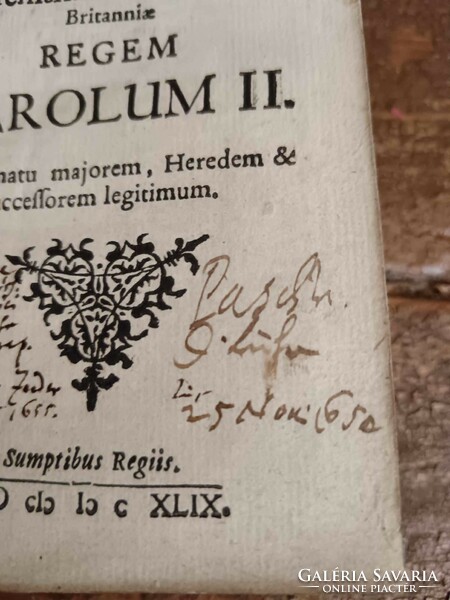 Britanniæ
REGEM
AROLUM II.
natu majorem, Heredem &
ccessorem legitimum.
1655.
25 Nov 1650
Sumptibus Regiis.
cIɔ Iɔ c XLIX.
GALÉRIA SAVARIA
ONLINE PIACTÉR